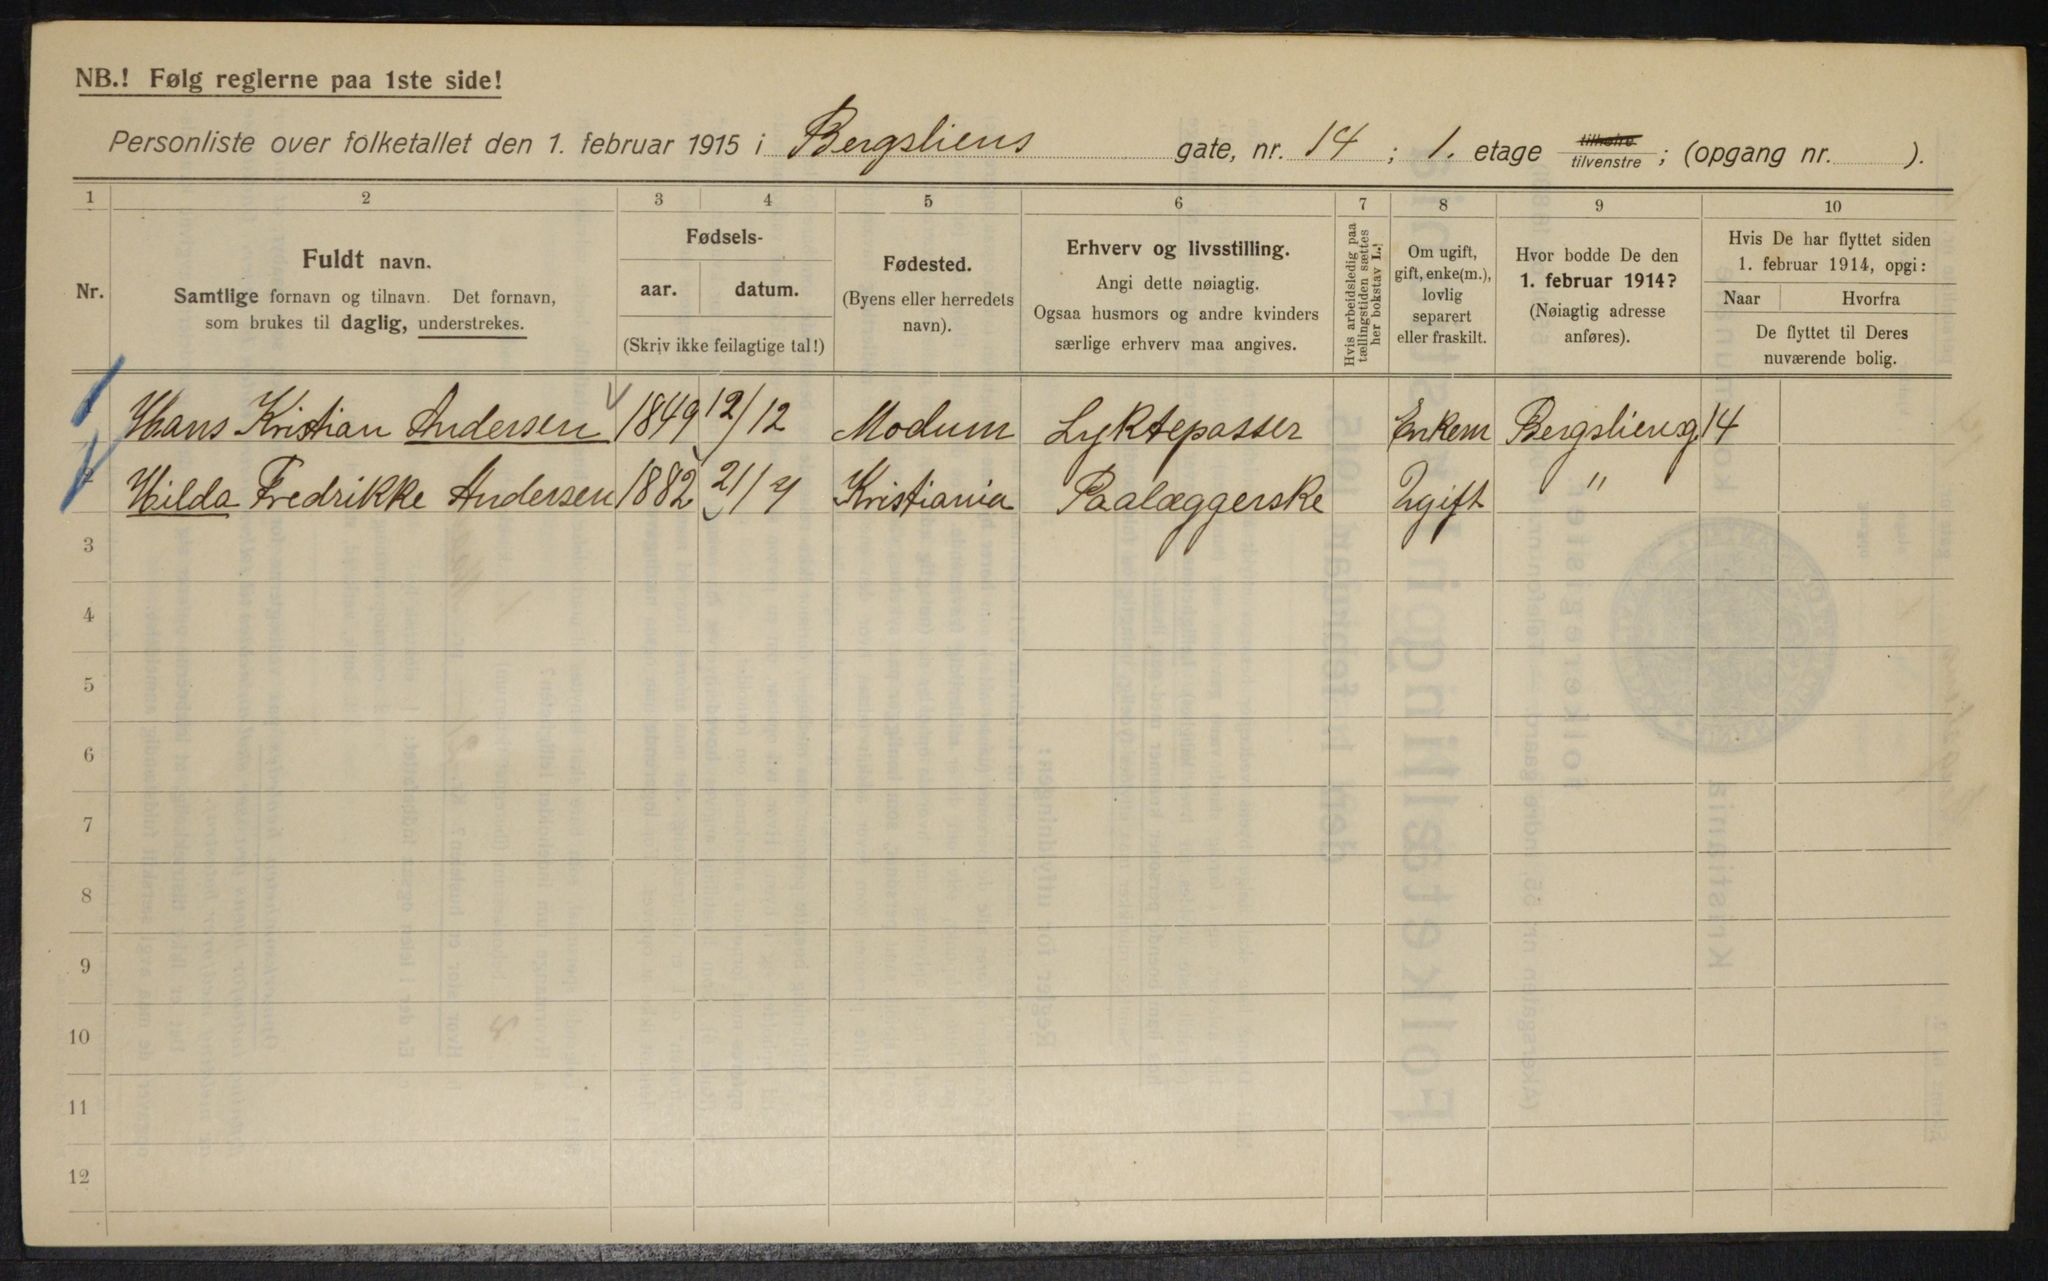 NB.! Følg reglerne paa 1ste side!
Personliste over folketallet den 1. februar 1915 i Bergsliens gate, nr. 14; 1. etage tilhøire tilvenstre; (opgang nr. ).
1 2 3 4 5 6 7 8 9 10
Nr.
Fuldt navn.
Samtlige fornavn og tilnavn. Det fornavn,
som brukes til daglig, understrekes.
Fødsels-
aar. datum.
(Skriv ikke feilagtige tal!)
Fødested.
(Byens eller herredets
navn).
Erhverv og livsstilling.
Angi dette nøiagtig.
Ogsaa husmors og andre kvinders
særlige erhverv maa angives.
Hvis arbeidsledig paa
tællingstiden sættes
her bokstav L.!
Om ugift,
gift, enke(m.),
lovlig
separert
eller fraskilt.
Hvor bodde De den
1. februar 1914?
(Nøiagtig adresse
anføres).
Hvis De har flyttet siden
1. februar 1914, opgi:
Naar Hvorfra
De flyttet til Deres
nuværende bolig.
1 Hans Kristian Andersen 1849 12/12 Modum Lyktepasser Enkem Bergslieng 14
2 Hilda Fredrikke Andersen 1882 21/7 Kristiania Paalæggerske Ugift "
3
4
5
6
7
8
9
10
11
12